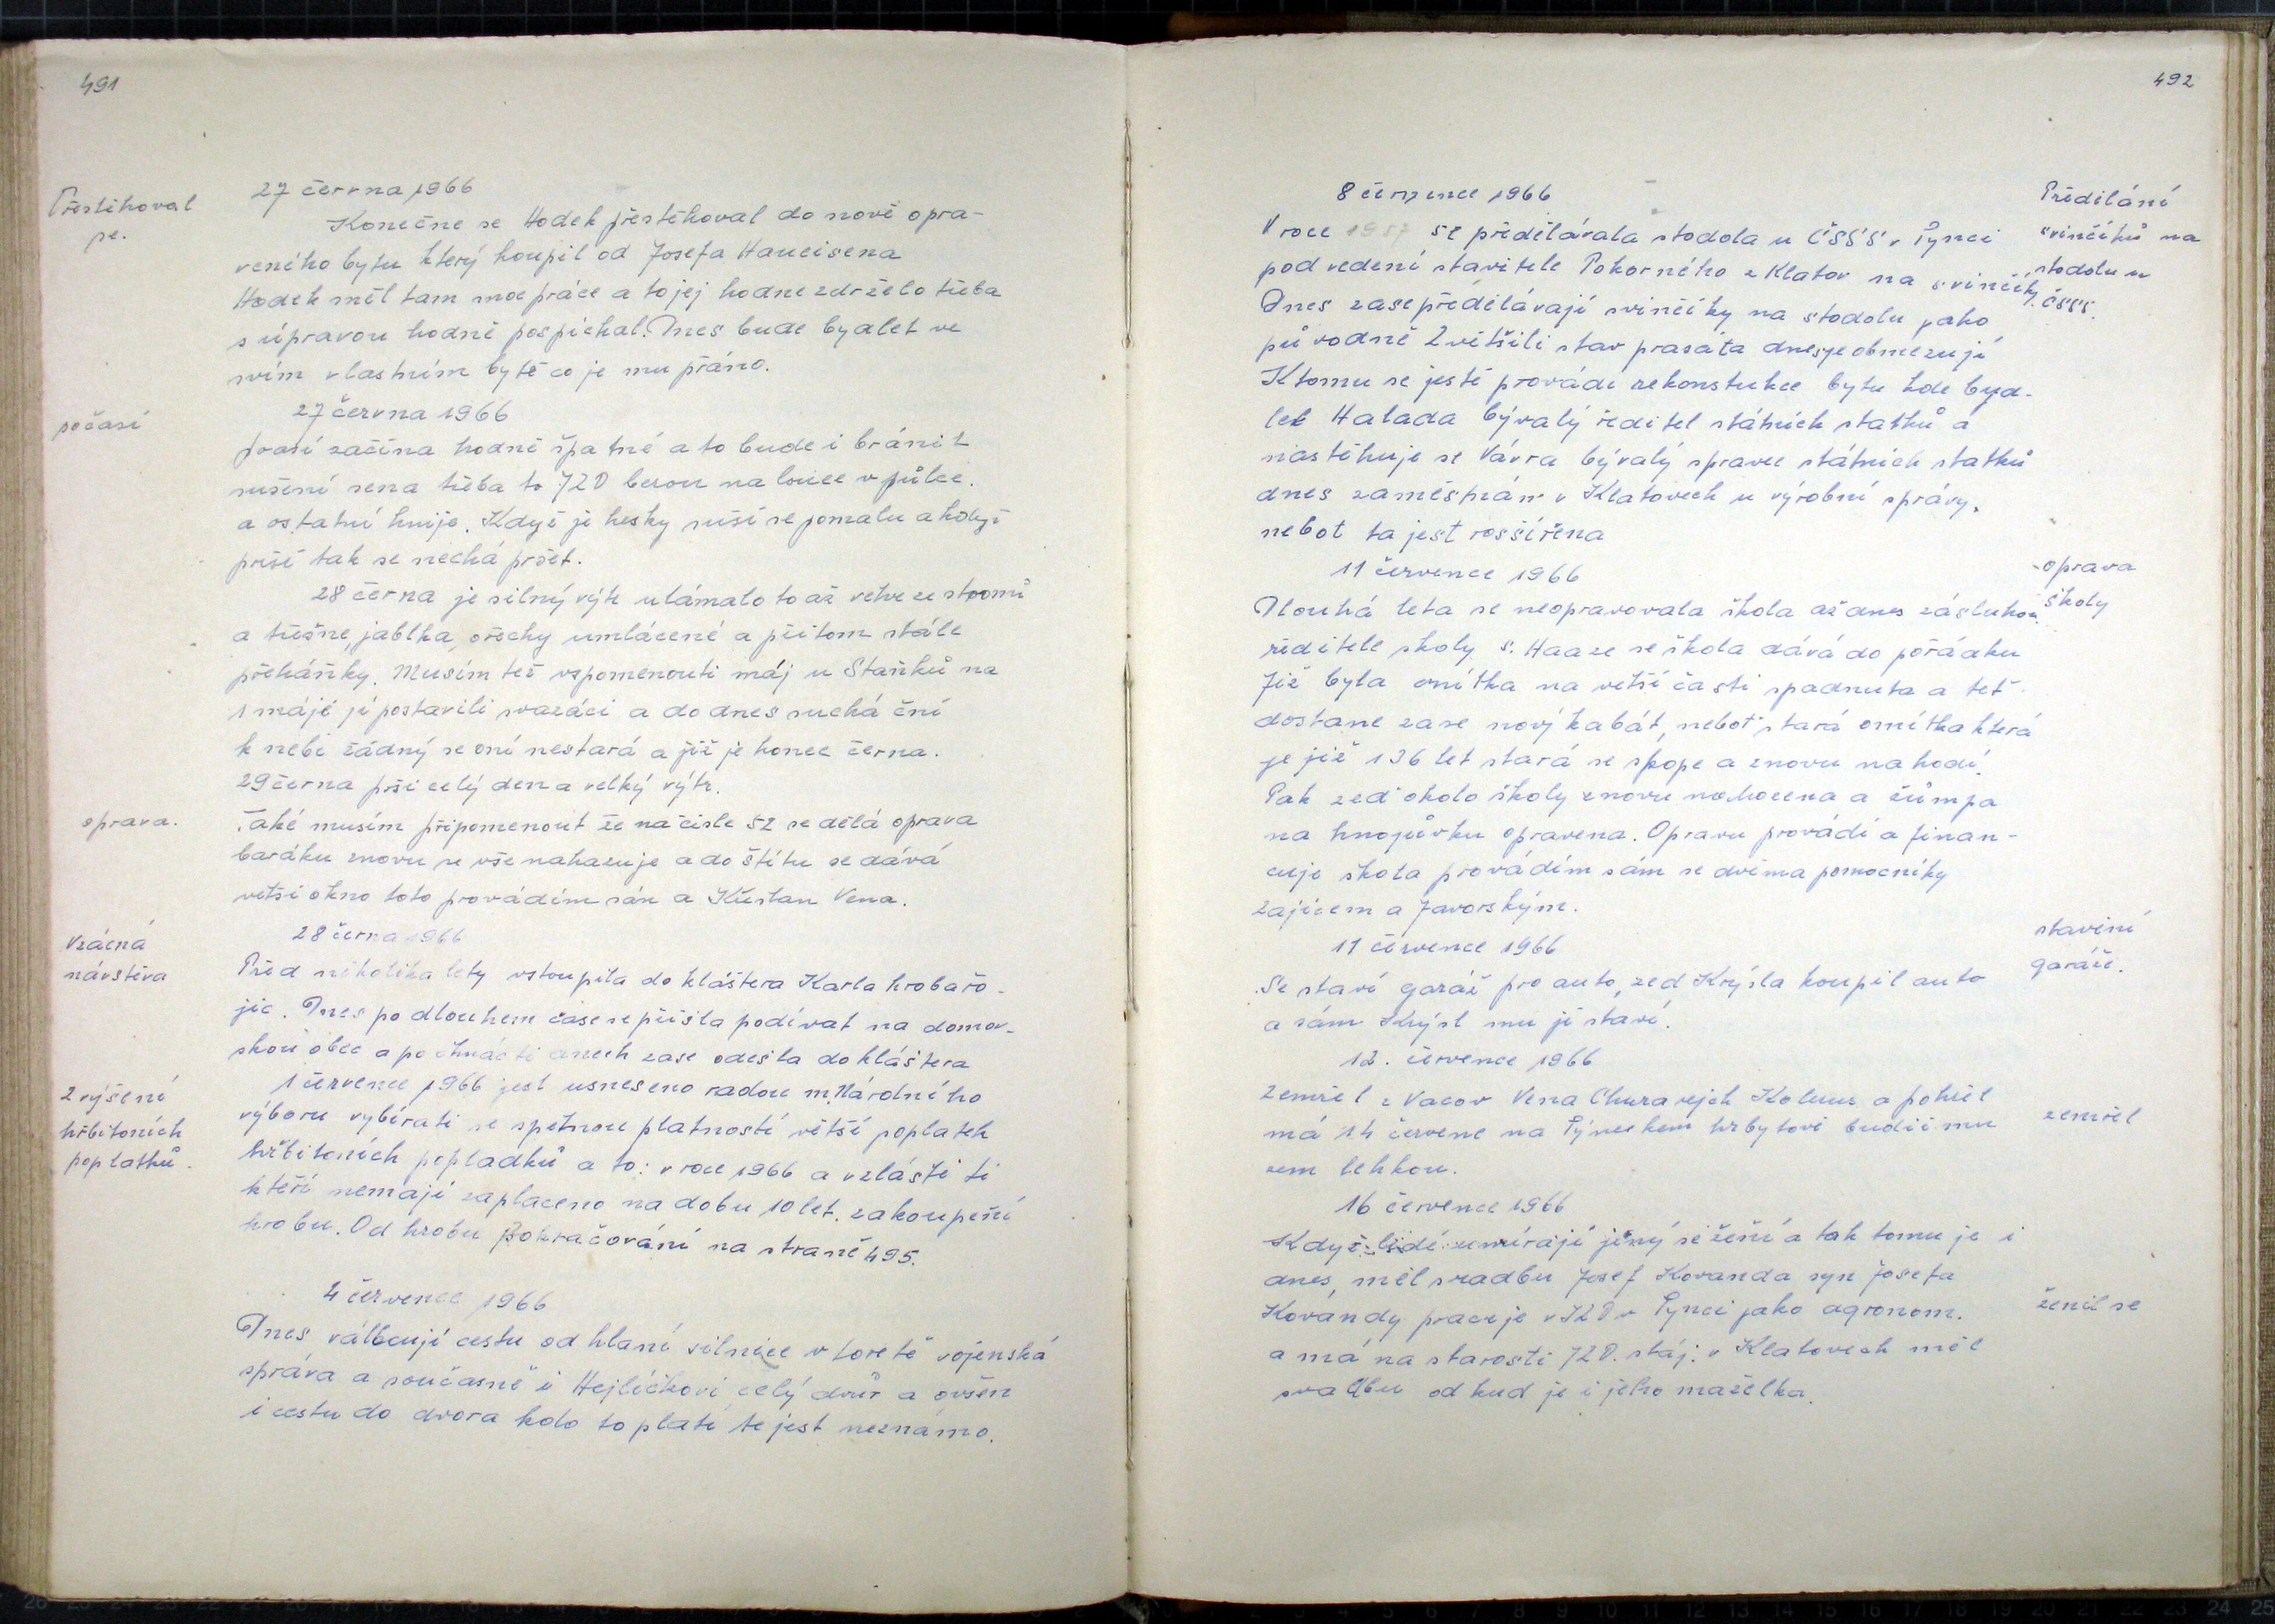 491
Přestěhoval
se.
27 června 1966
Konečne se Hodek přestěhoval do nově opra-
veného bytu který koupil od Josefa Haueisena
Hodek měl tam moc práce a to jej hodne zdrželo třeba
s úpravou hodně pospíchal. Dnes bude bydlet ve
svím vlastním bytě co je mu přáno.
počasí
27 června 1966
začína hodně špatné a to bude i bránit
sušení sena třeba to JZD berou na louce v půlce.
a ostatní hnije. Když je hesky suší se pomalu a když
prší tak se nechá pršet.
28 černa je silný výtr ulámalo to až vetve ze stromů
a třešne, jablka, ořechy umlácené a přitom stále
přeháňky. Musím tež vspomenouti máj u Staňků na
1 máje ji postavili svazáci a do dnes suchá ční
k nebi žádný se oní nestará a již je konec černa.
29 černa prši celý den a velký výtr.
oprava.
Také musím připomenout že na čísle 52 se dělá oprava
baráku znovu se vše nahazuje a do štítu se dává
vetší okno toto provádím sám a Křístan Vena.
Vzácná
návstěva
28 černa 1966
Před několika lety vstoupila do kláštera Karla hrobařo-
jic. Dnes po dlouhem čase se přišla podívat na domov-
skou obec a po čtnácti dnech zase odešla do kláštera
Zvýšení
hřbitoních
poplatků.
1 července 1966 jest usneseno radou m. Národního
výboru vybírati se spetnou platností větší poplatek
hřbitoních popladků a to: v roce 1966 a vzlášti ti
kteří nemají zaplaceno na dobu 10 let. zakoupení
hrobu. Od hrobu Pokračování na straně 495.
4 července 1966
Dnes válcují cestu od hlaní silnice v loretě vojenská
správa a současně i Hejlíčkovi celý dvůr a ovšem
i cestu do dvora kdo to platí te jest neznámo.
492
8 července 1966
Předělání
svinčíků na
stodolu u
ČSSS.
V roce 1957 se předělávala stodola u ČSSS v Týnci
pod vedení stavitele Pokorného z Klatov na svinčíky.
Dnes zase předělávají svinčíky na stodolu jako
původně Zvětšili stav prasata dnes je obmezují
Ktomu se jestě provádi rekonstukce bytu kde byd-
lel Halada bývalý ředitel státních statků a
nastěhuje se Vávra bývalý spravce státních statků
dnes zaměstnán v Klatovech u výrobní správy.
nebot ta jest rosšířena
oprava
školy
11 července 1966
Dlouhá leta se neopravovala škola až dnes zásluhou
ředitele skoly s. Haaze se škola dává do pořádku
Již byla omítka na vetší časti spadnuta a teť
dostane zase nový kabát, neboť stará omítka která
je již 136 let stará se skope a znovu nahodí.
Pak zeď okolo školy znovu nahocena a žůmpa
na hnojůvku opravena. Opravu provádí a finan-
cuje škola provádím sám se dvěma pomocníky
Zajícem a Javorským.
stavení
garáže.
11 července 1966
Se staví garáž pro auto, zed Krýsla koupil auto
a sám Krýsl mu ji staví.
12. července 1966
zemřel
Zemřel z Vacov Vena Churavejch a pohřel
má 14 červene na Týneckem hrbytově budiž mu
zem lehkou.
16 července 1966
Když lidé umírají jiný se žení a tak tomu je i
dnes, měl svadbu Josef Kovanda syn Josefa
ženil se
Kovandy pracuje v JZD v Týnci jako agronom.
a má na starosti JZD. stáj. v Klatovech měl
svadbu od kud je i jeho mažělka.